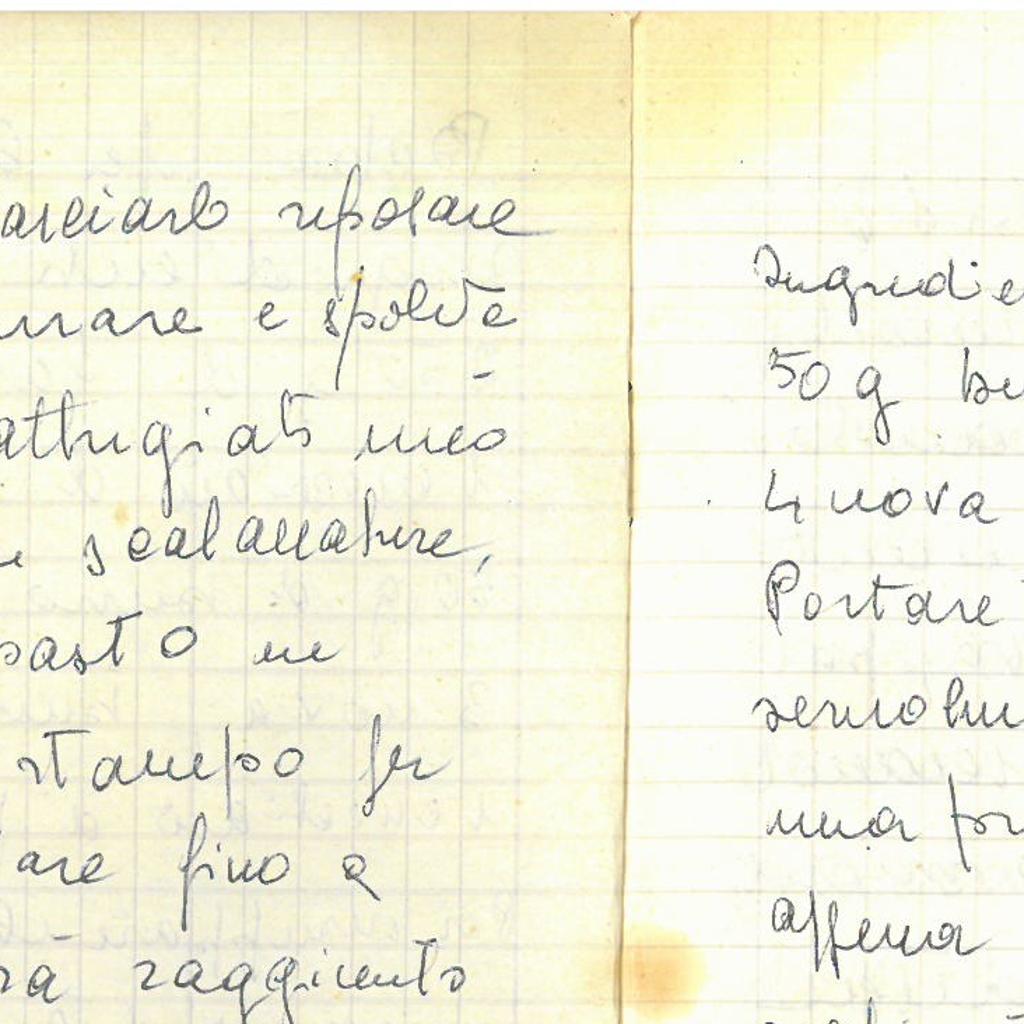 asciarlo riposare
urrare e spolve
attugiato uno
scalanature,
pasto in
stampo per
are fino a
rà raggiunto
Ingredie
50 g bu
4 uova
Portare
semolin
una pr
appena